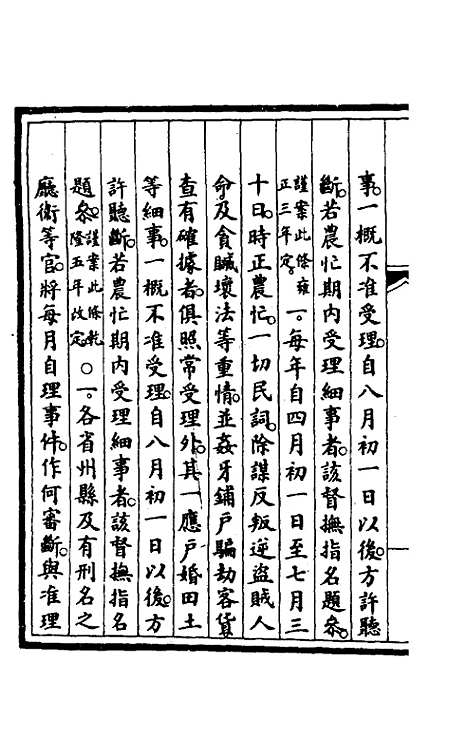 事。一概不准受理。自八月初一日以後。方許聽
斷。若農忙期內受理細事者。該督撫指名題參。
謹案此條雍正三年定。一。每年自四月初一日至七月三
十日。時正農忙。一切民詞。除謀反叛逆盜賊人
命及貪贓壞法等重情。並姦牙鋪戶騙劫客貨
查有確據者。俱照常受理外。其一應戶婚田土
等細事。一概不准受理。自八月初一日以後。方
許聽斷。若農忙期內受理細事者。該督撫指名
題參。謹案此條乾隆五年改定○一。各省州縣及有刑名之
廳衛等官。將每月自理事件。作何審斷。與准理